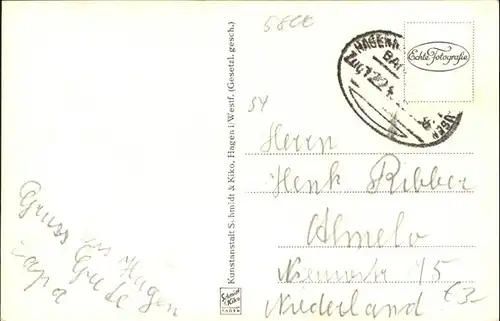 58CC
HAGEN
BA
Zug 1224
Echte Fotografie
54
Herrn
Henk Ribber
Almelo
15
Niederland
€3-
Kunstanstalt Schmidt & Kiko, Hagen i/Westf. (Gesetzl. gesch.)
Schmidt
Kiko
HAGEN
Gruss aus Hagen
Grete
papa